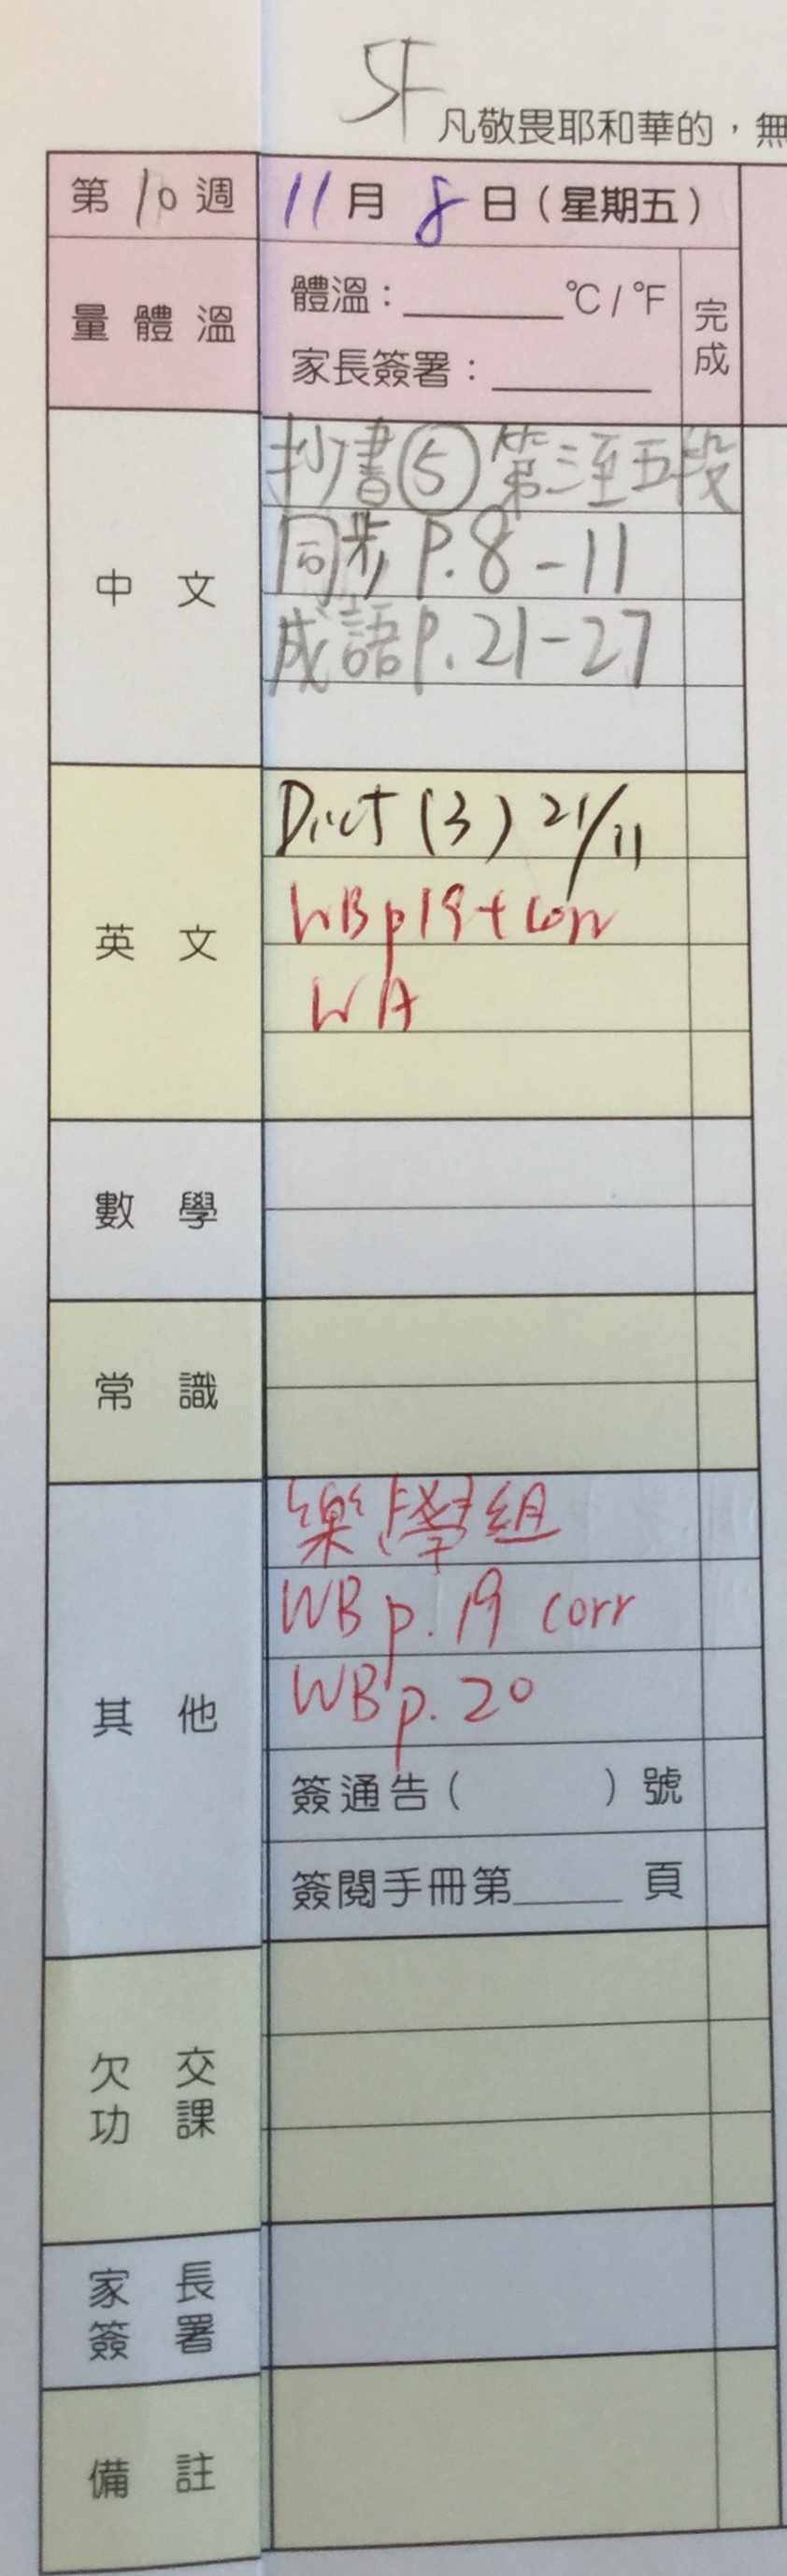 5F
凡敬畏耶和華的,無
第10週 11月8日(星期五)
量體溫
體溫:______°C / °F
家長簽署:______
完成
中文
抄書⑤第三至五段
同步 P.8-11
成語P.21-27
英文
Dict (3) 21/11
WB p19 + corr
WA
數學
常識
其他
樂學組
WB p.19 corr
WB p.20
簽通告( )號
簽閱手冊第____頁
欠交功課
家長簽署
備註